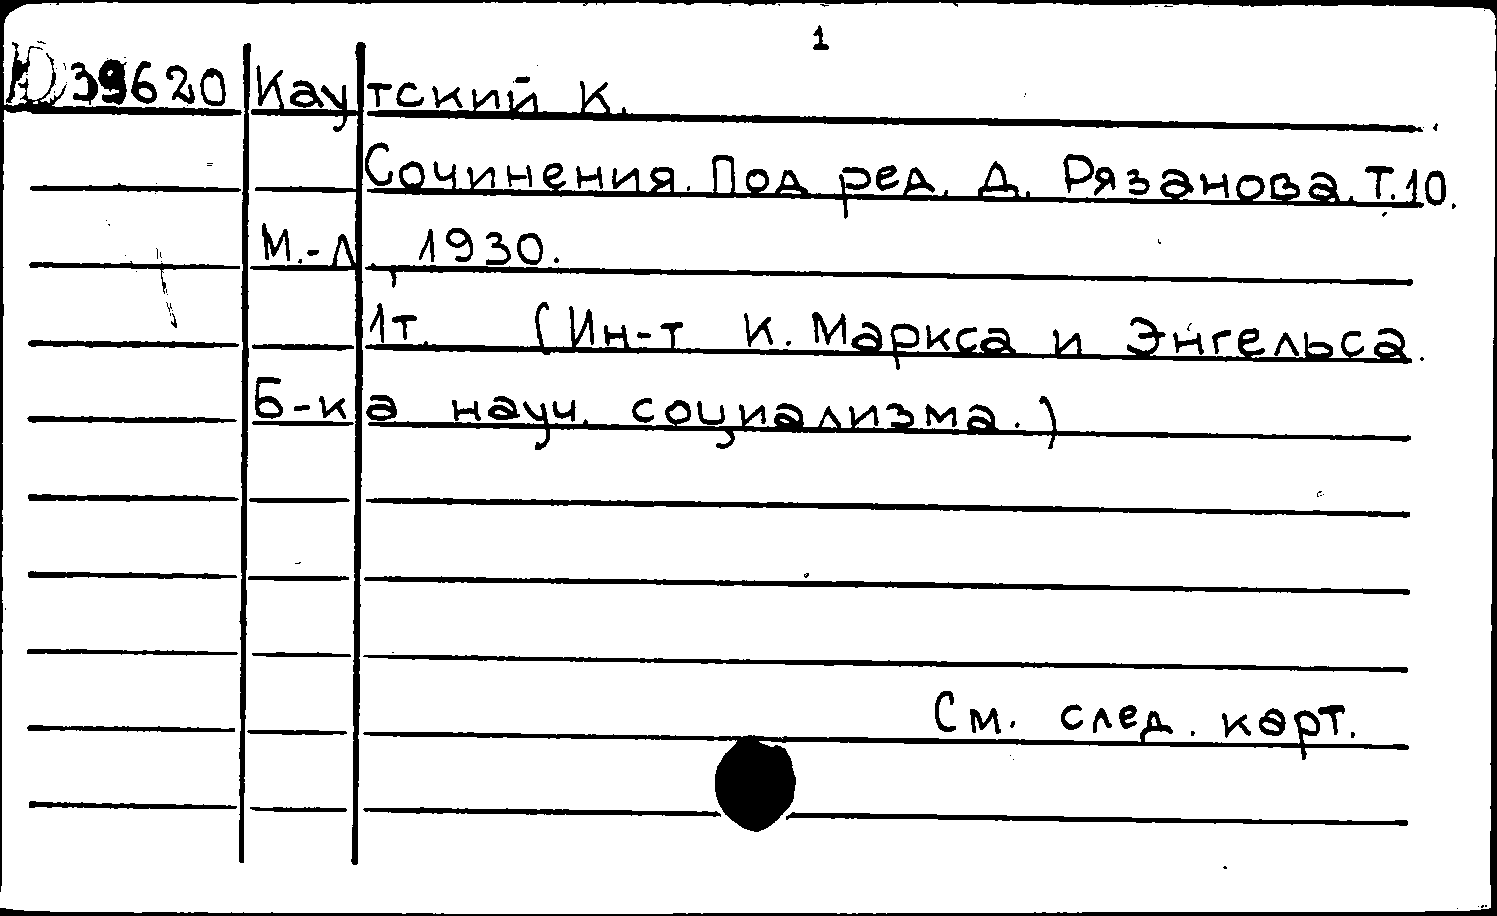 1
39620 Каутский К.
Сочинения. Под ред. Д. Рязанова. Т.10.
М.-Л., 1930.
1т. (Ин-т К. Маркса и Энгельса.
Б-ка науч. социализма.)
См. след. карт.